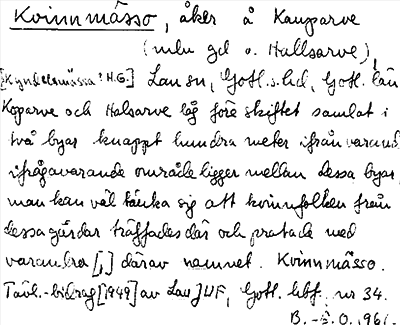 Kvinnmässo, åker å Kauparve
(mln gd o. Hallsarve),
[Kyndelsmässa? H.G.] Lau sn, Gotl. s. hd, Gotl. län
Koparve och Halsarve låg före skiftet samlat i
två byar knappt hundra meter ifrån varandra,
ifrågavarande område ligger mellan dessa byar,
man kan väl tänka sig att kvinnfolken från
dessa gårdar träffades där och pratade med
varandra [,] därav namnet. Kvinnmässo.
Tävl.-bidrag [1949] av Lau JUF, Gotl. hbf. nr 34.
B. O. 1961.